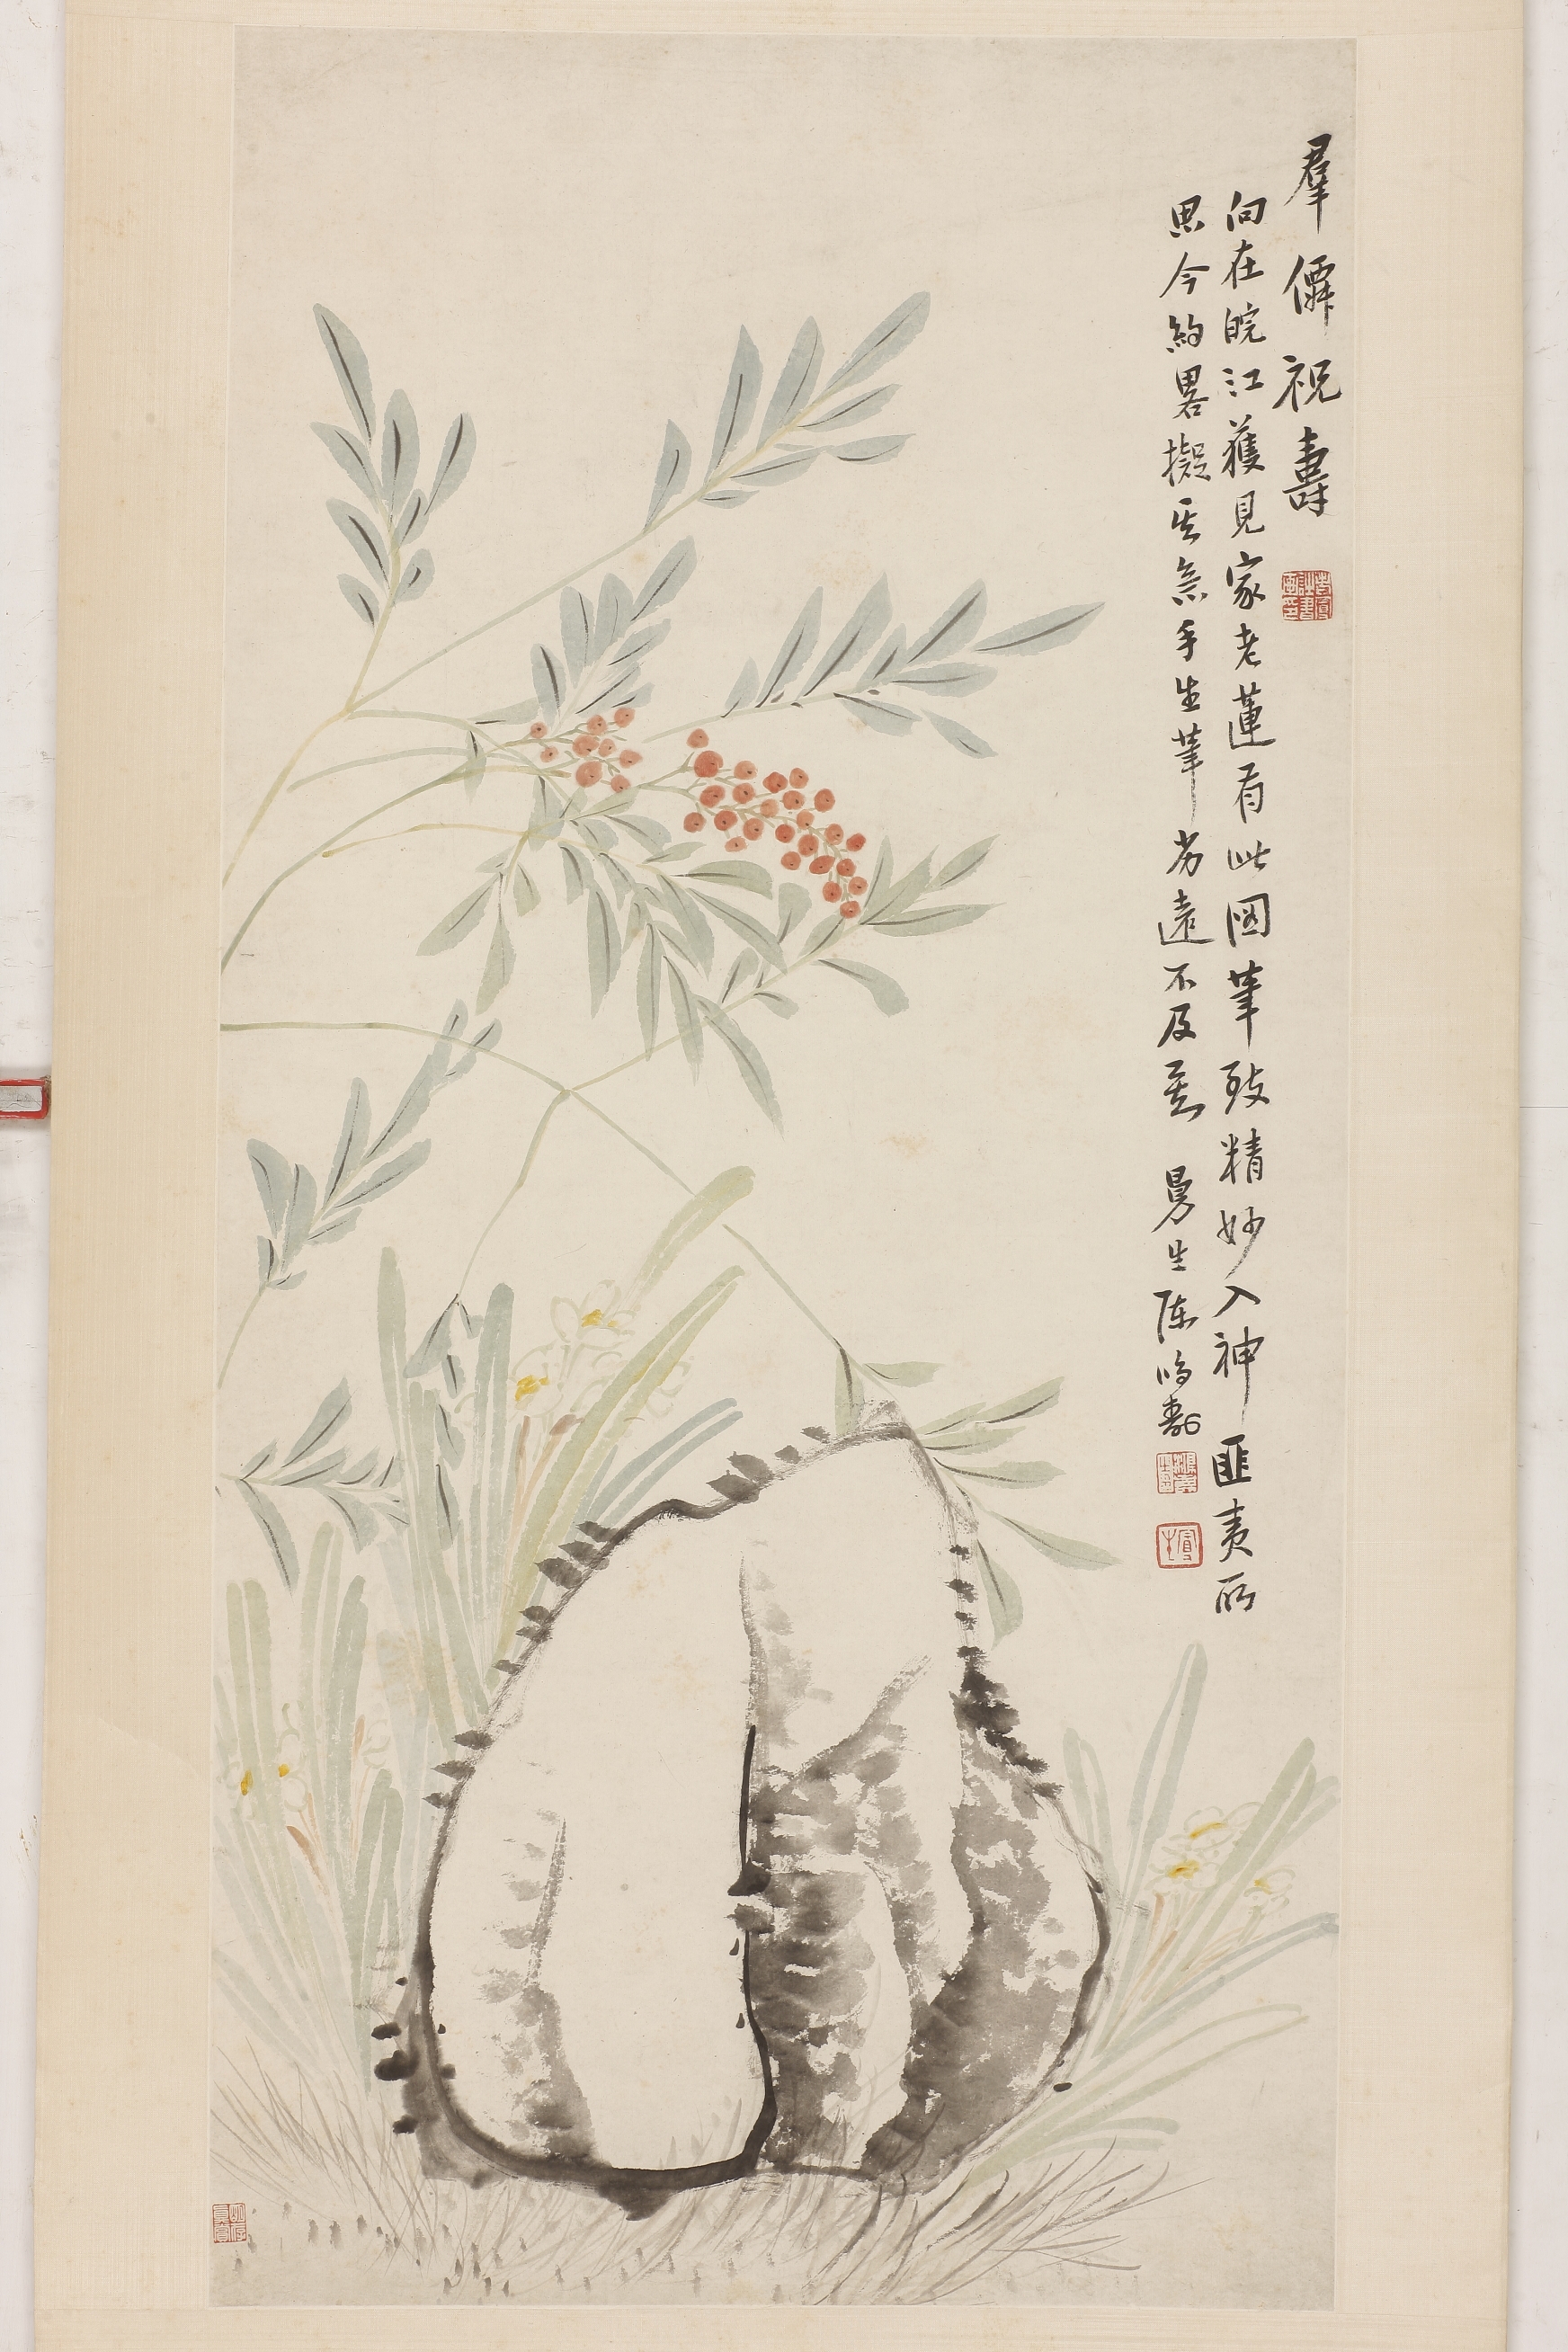 羣僊祝壽
向在皖江獲見家老蓮有此圖筆致精妙入神匪夷所
思今約畧擬其意手生筆劣遠不及甚 曼生陈鸿壽